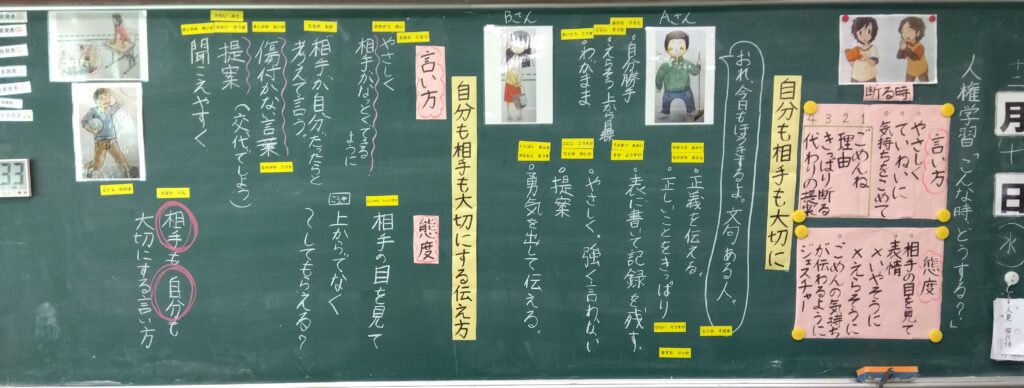 十二月十日(水)
人権学習「こんな時、どうする？」
断る時
言い方
やさしく
ていねいに
気持ちをこめて
1 ごめんね
2 理由
3 きっぱり断る
4 代わりの提案
態度
相手の目を見て
表情
×いやそうに
×えらそうに
ごめんの気持ちが伝わるように
ジェスチャー
自分も相手も大切に
おれ、今日もほうきするよ。文句ある人。
Aさん
・自分勝手
・えらそう 上から目線
・わがまま
・正義を伝える。
・正しいことをきっぱり
・表に書いて記録を残す
・やさしく、強く言わない
・提案
・勇気を出して伝える。
Bさん
自分も相手も大切にする伝え方
言い方
やさしく
相手がなっとくできるように
相手が自分だったらと考えて言う。
傷付かない言葉
提案(交代でしよう)
聞こえやすく
態度
相手の目を見て
上からでなく
～してもらえる？
相手も自分も
大切にする言い方
33